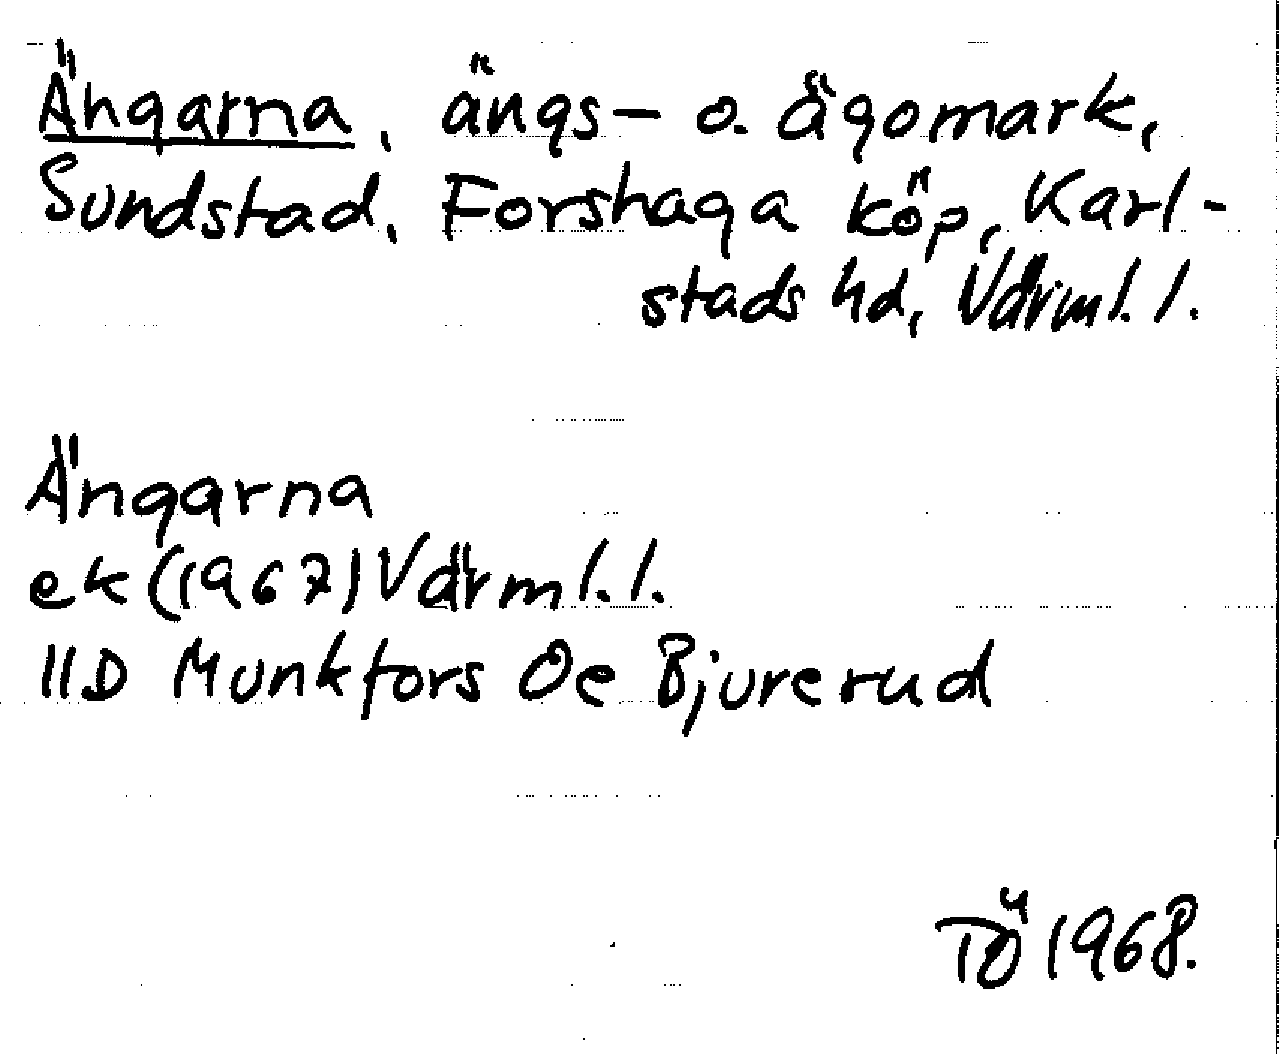 Ängarna, ängs- o. ägomark,
Sundstad, Forshaga köp, Karl-
stads hd, Värml. l.
Ängarna
ek (1967) Värml. l.
11D Munkfors Öe Bjurerud
TÖ 1968.